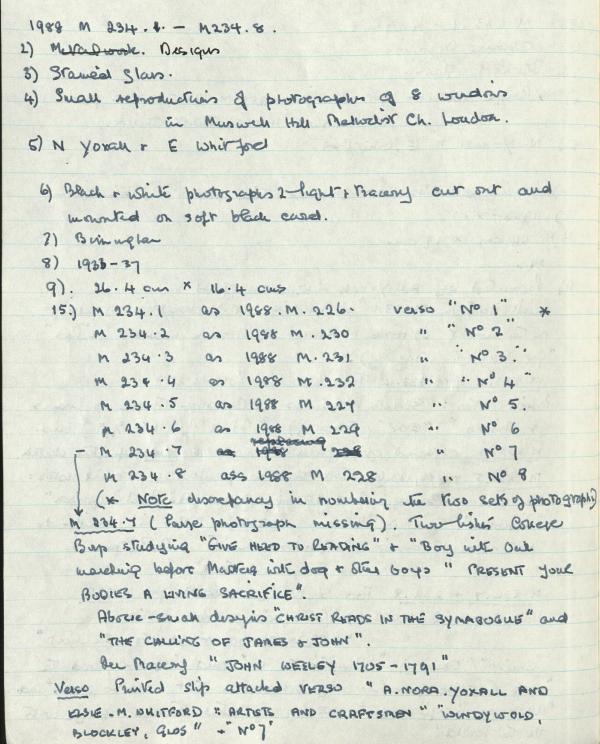 1988 M 234.1 - M234.8.
2) Metalwork. Designs
3) Stained Glass.
4) Small reproductions of photographs of 8 windows
in Muswell Hill Methodist Ch. London.
5) N Yoxall & E Whitford
6) Black & white photographs 2-light & tracery cut out and
mounted on soft black card.
7) Birmingham
8) 1933-37
9). 26.4 cms x 16.4 cms
15.) M 234.1 as 1988.M.226. verso "No 1" *
M 234.2 as 1988 M.230 " "No 2"
M 234.3 as 1988 M.231 " "No 3."
M 234.4 as 1988 M.232 " "No 4"
M 234.5 as 1988 M 227 " No 5
M 234.6 as 1988 M 229 " No 6
- M 234.7 as 1988 " No 7
M 234.8 as 1988 M 228 " No 8
(* Note discrepancy in numbering the two sets of photographs)
M 234.7 (Large photograph missing). Two-light College
Boys studying "GIVE HEED TO READING" & "Boy with
marching before Master with dog & other boys "PRESENT YOUR
BODIES A LIVING SACRIFICE".
Above-small designs "CHRIST READS IN THE SYNAGOGUE" and
"THE CALLING OF JAMES & JOHN".
In tracery "JOHN WESLEY 1705-1791"
Verso Printed slip attached VERSO "A. NORA. YOXALL AND
ELSIE. M. WHITFORD : ARTISTS AND CRAFTSMEN" "WINDYWOLD,
BLOCKLEY, GLOS" - "No 7"